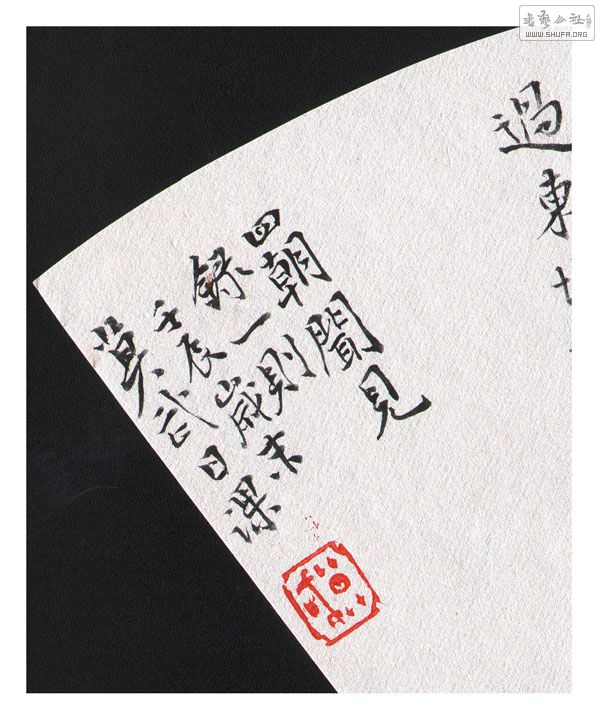 書藝公社
WWW.SHUFA.ORG
過東
四朝聞見
錄一則
壬辰歲末
莫武日課